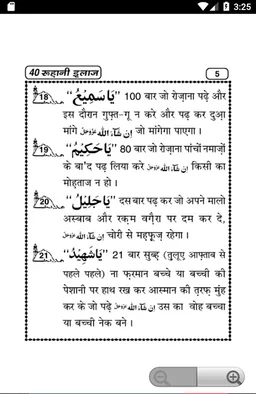 3:25
40 रूहानी इलाज
5
18 ''يَا سَمِيْعُ'' 100 बार जो रोज़ाना पढ़े और
इस दौरान गुफ़्त-गू न करे और पढ़ कर दुआ
मांगे اِنْ شَآءَاللّٰه عَزَّوَجَلَّ जो मांगेगा पाएगा।
19 ''يَا حَكِيْمُ'' 80 बार जो रोज़ाना पांचों नमाज़ों
के बा'द पढ़ लिया करे اِنْ شَآءَاللّٰه عَزَّوَجَلَّ किसी का
मोह़ताज न हो।
20 ''يَا جَلِيْلُ'' दस बार पढ़ कर जो अपने मालो
अस्बाब और रक़म वग़ैरा पर दम कर दे,
اِنْ شَآءَاللّٰه عَزَّوَجَلَّ चोरी से मह़फ़ूज़ रहेगा।
21 ''يَا شَهِيْدُ'' 21 बार सुब्ह़ (तुलूए आफ़्ताब से
पहले पहले) ना फ़रमान बच्चे या बच्ची की
पेशानी पर हाथ रख कर आस्मान की त़रफ़ मुंह
कर के जो पढ़े اِنْ شَآءَاللّٰه عَزَّوَجَلَّ उस का वोह बच्चा
या बच्ची नेक बने।